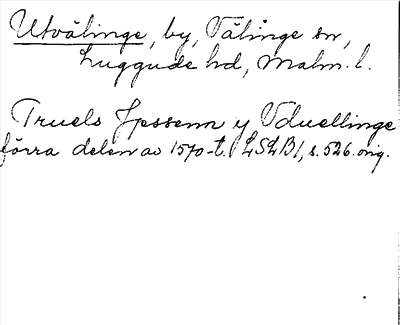 Utvälinge, by, Välinge sn,
Luggude hd, Malm. l.
Truels Jpssenn y Vduellinge
förra delen av 1570-t. LSLB 1, s. 526. orig.